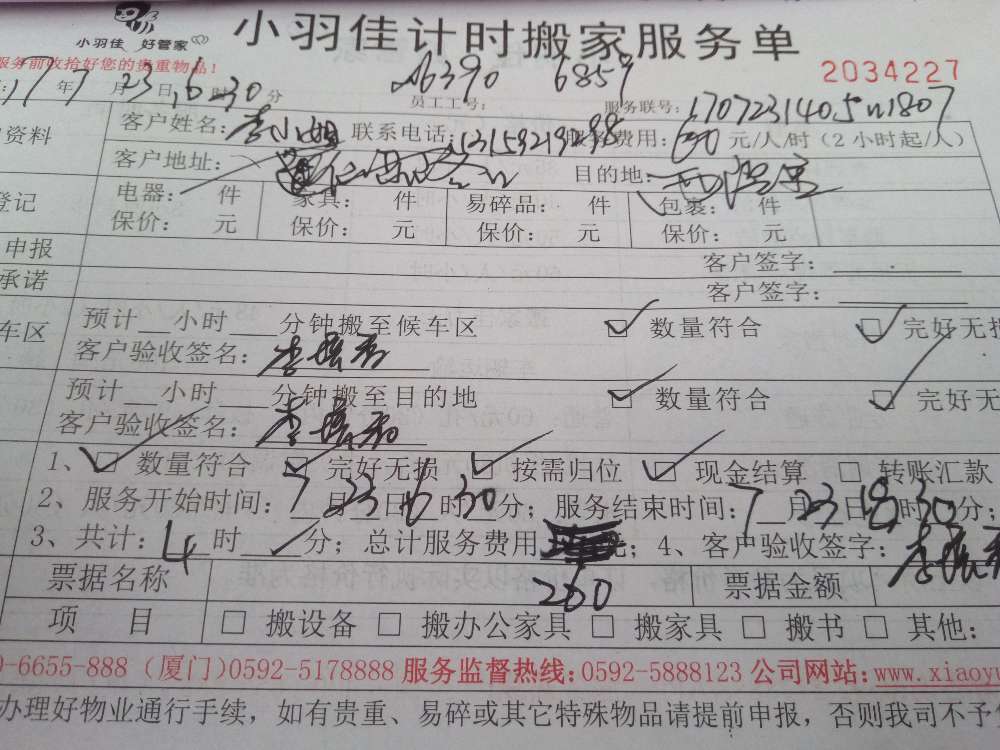 小羽佳 好管家
小羽佳计时搬家服务单
服务前收拾好您的贵重物品!
2034227
17年7月23日16时30分 员工工号: A6390 6859 服务联号:
资料 客户姓名: 李小姐 联系电话: 服务费用: 元/人/时(2小时起/人)
客户地址: 目的地:
登记 电器: 件 家具: 件 易碎品: 件 包裹: 件
保价: 元 保价: 元 保价: 元 保价: 元
申报 客户签字:
承诺 客户签字:
车区 预计__小时__分钟搬至候车区 ☑ 数量符合 ☑ 完好无损
客户验收签名:
预计__小时__分钟搬至目的地 ☑ 数量符合 ☑ 完好无
客户验收签名:
1、☑ 数量符合 ☑ 完好无损 ☑ 按需归位 ☑ 现金结算 □ 转账汇款
2、服务开始时间: 7月23日16时30分; 服务结束时间: 7月23日18时30分;
3、共计: 4时 分; 总计服务费用 元; 4、客户验收签字:
票据名称 260 票据金额
项 目 □ 搬设备 □ 搬办公家具 □ 搬家具 □ 搬书 □ 其他:
0-6655-888 (厦门)0592-5178888 服务监督热线:0592-5888123 公司网站:www.xiaoyu
办理好物业通行手续,如有贵重、易碎或其它特殊物品请提前申报,否则我司不予